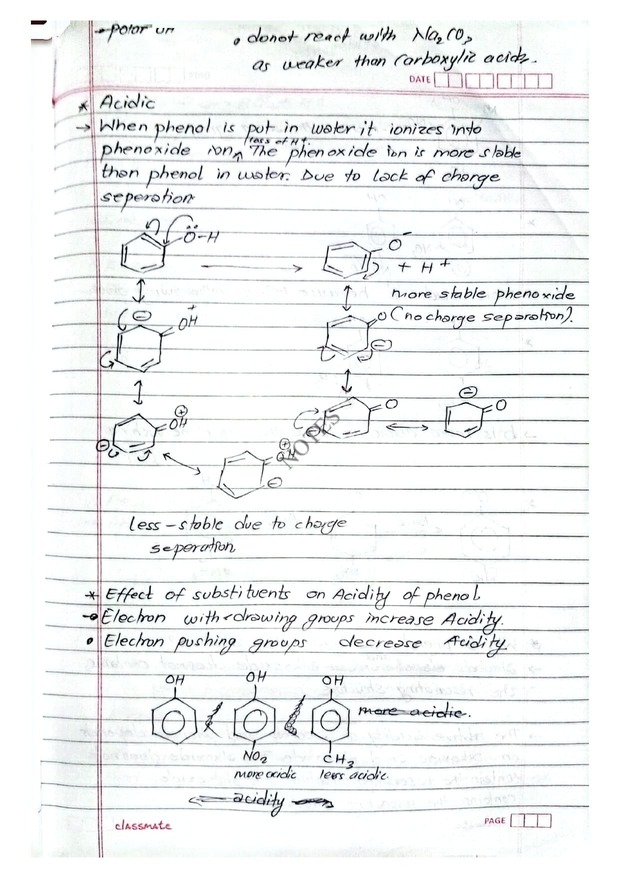 → polar
• donot react with Na₂CO₃
as weaker than Carboxylic acids.
DATE
* Acidic
→ When phenol is put in water it ionizes into
loss of H⁺
phenoxide ion. The phenoxide ion is more stable
than phenol in water. Due to lack of charge
seperation
Ö-H
O⁻
+ H⁺
more stable phenoxide
(no charge separation).
⊖
OH⁺
O
⊖
⊖
O
⊖
O
⊖
OH⊕
OH⊕
⊖
NOTES
less-stable due to charge
seperation
* Effect of substituents on Acidity of phenol
→• Electron with-drawing groups increase Acidity.
• Electron pushing groups decrease Acidity
OH
OH
OH
more acidic.
NO₂
CH₃
more acidic
less acidic
acidity
classmate
PAGE